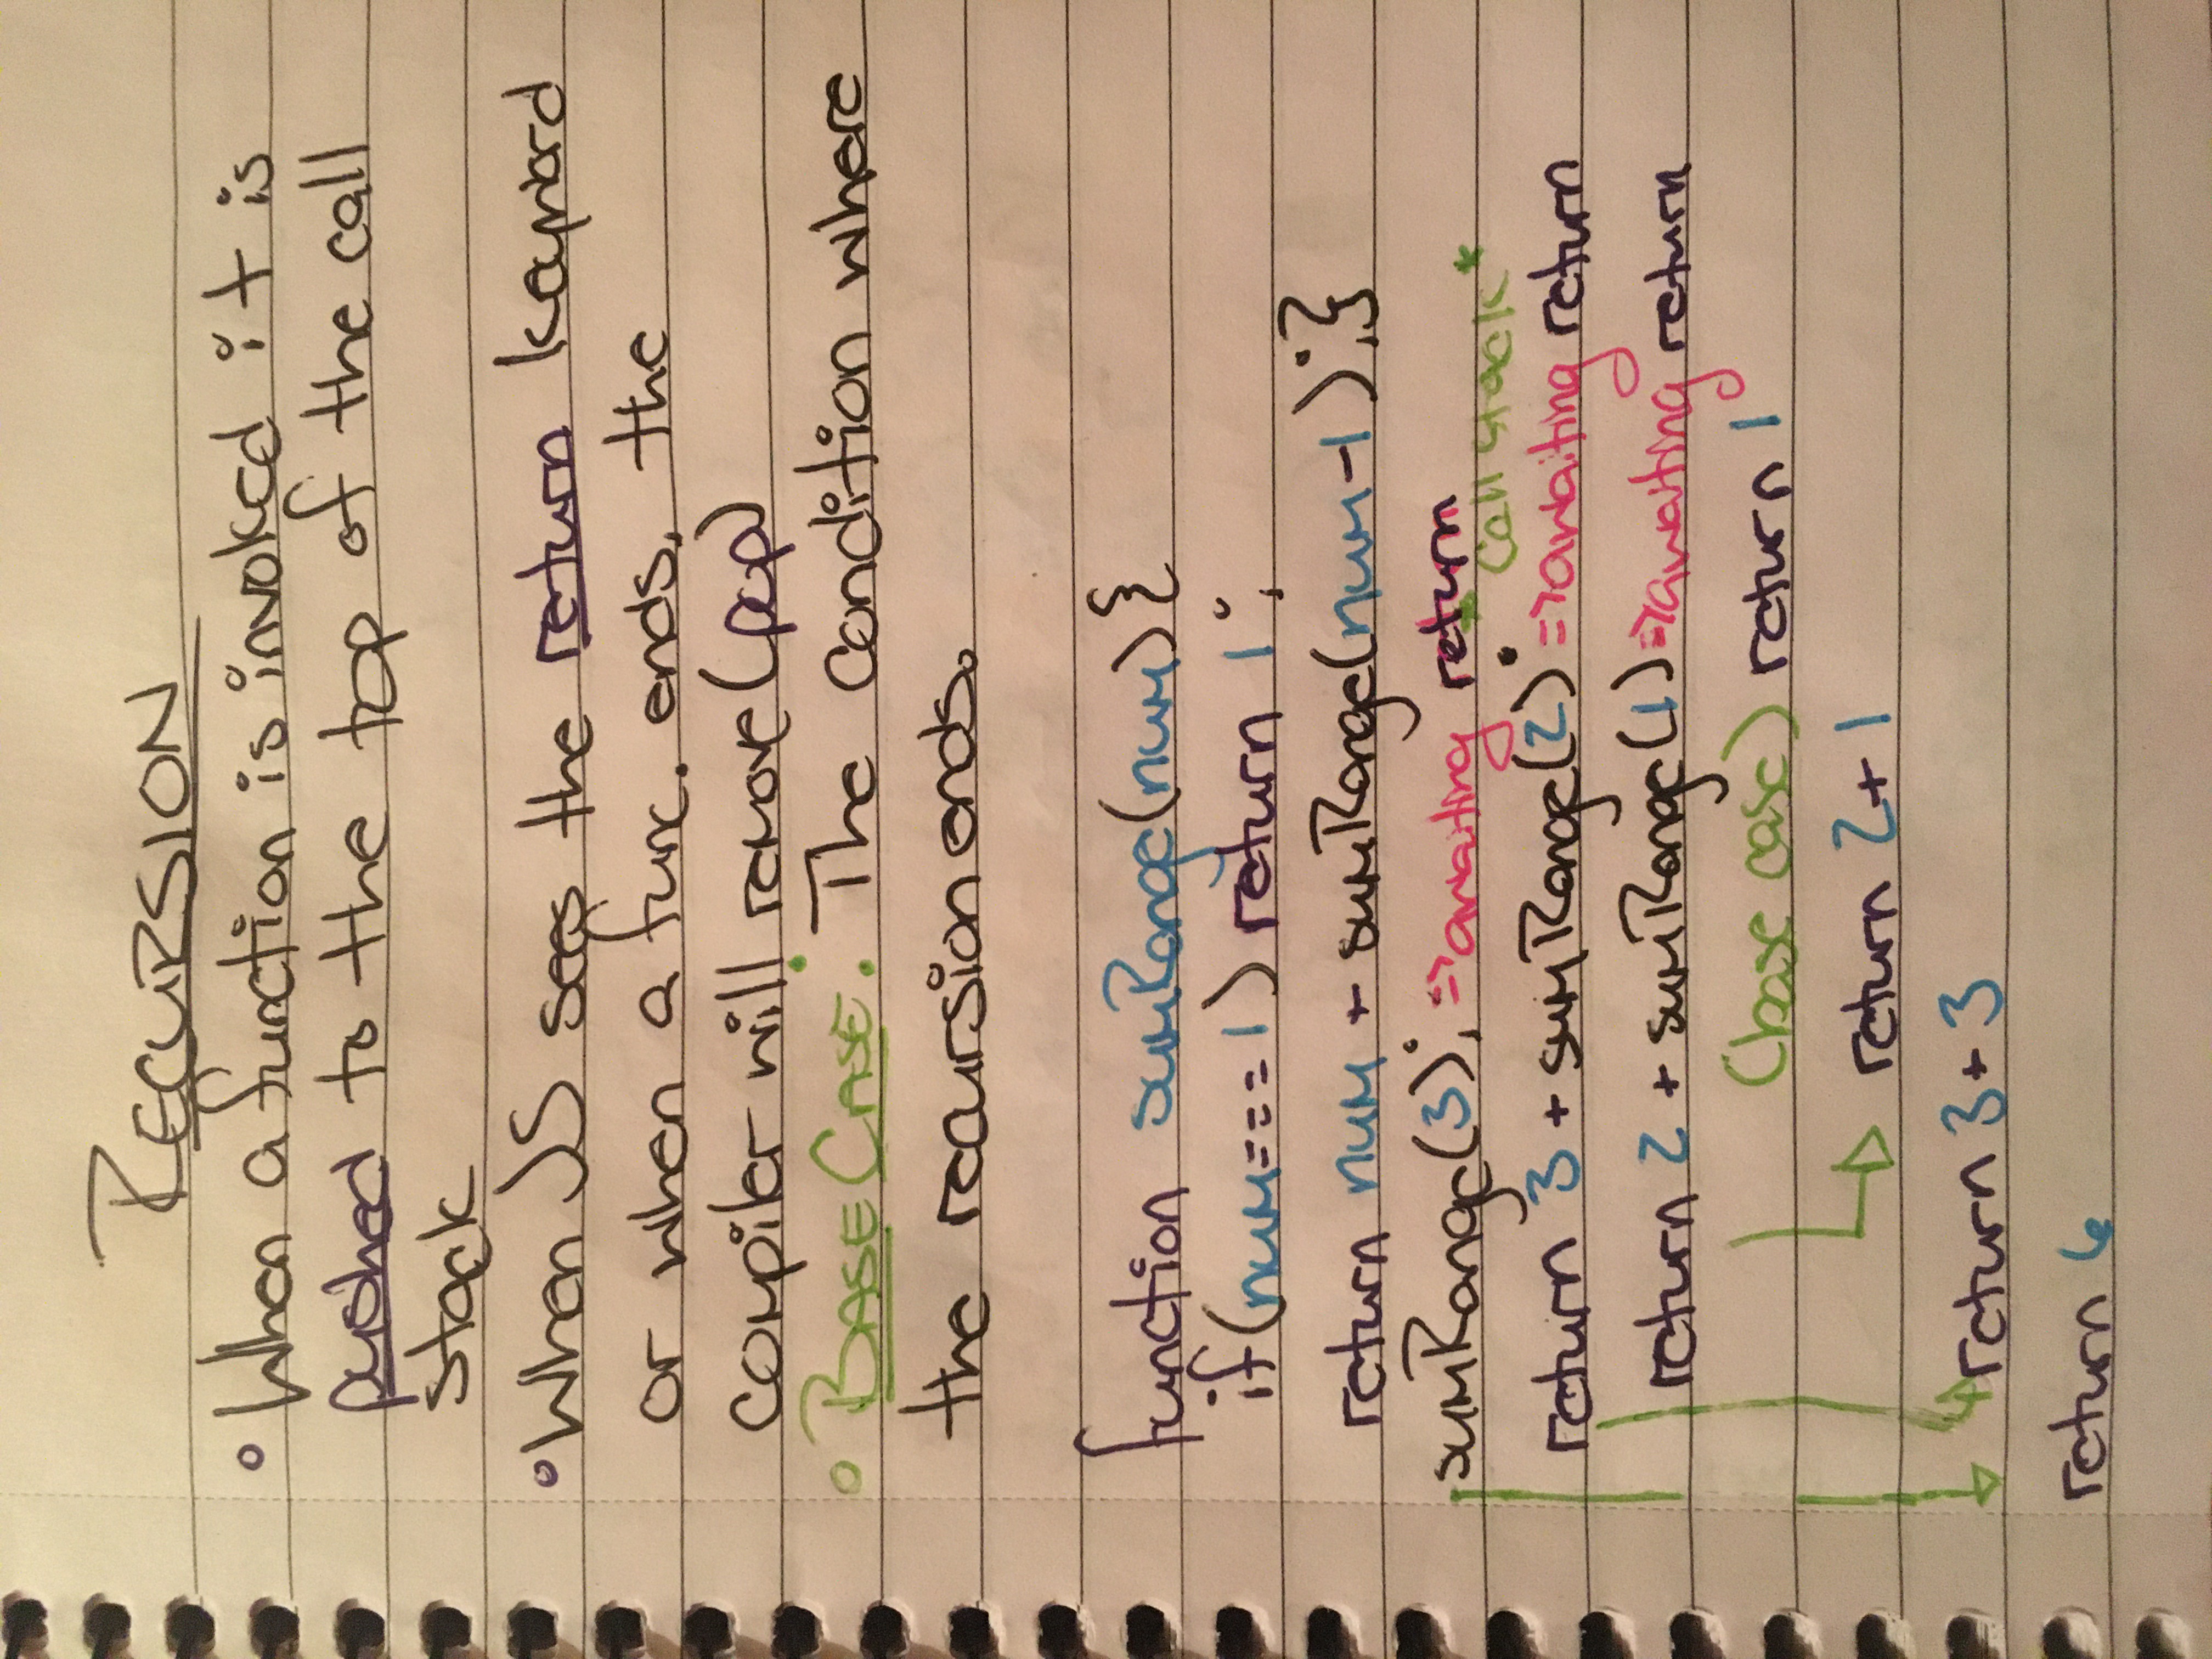 RECURSION
• When a function is invoked it is
pushed to the top of the call
stack
• When JS sees the return keyword
or when a func. ends, the
compiler will remove (pop)
• BASE CASE: The condition where
the recursion ends.
function sumRange(num){
if(num===1) return 1;
return num + sumRange(num-1);}
sumRange(3); => awaiting return
*call stack*
return 3 + sumRange(2) => awaiting return
return 2 + sumRange(1) => awaiting return
(base case) return 1
return 2+1
return 3+3
return 6